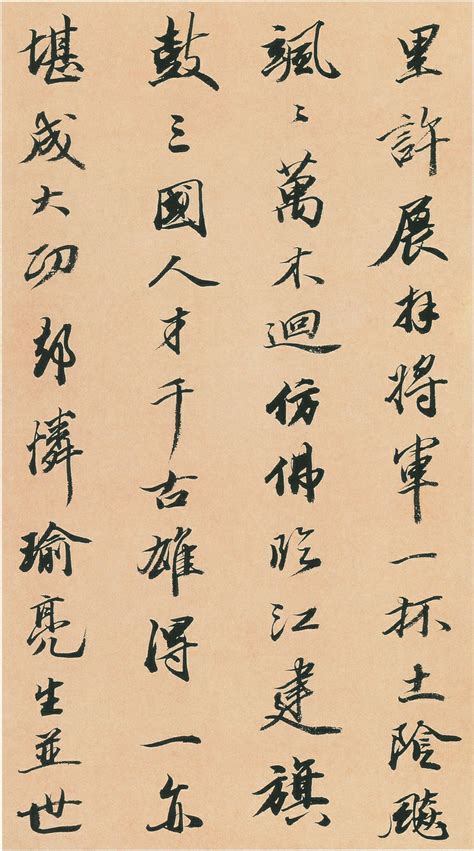 里許展拜將軍一抔土陰飈
颯々萬木迴仿佛臨江建旗
鼓三國人才千古雄得一亦
堪成大功却憐瑜亮生並世